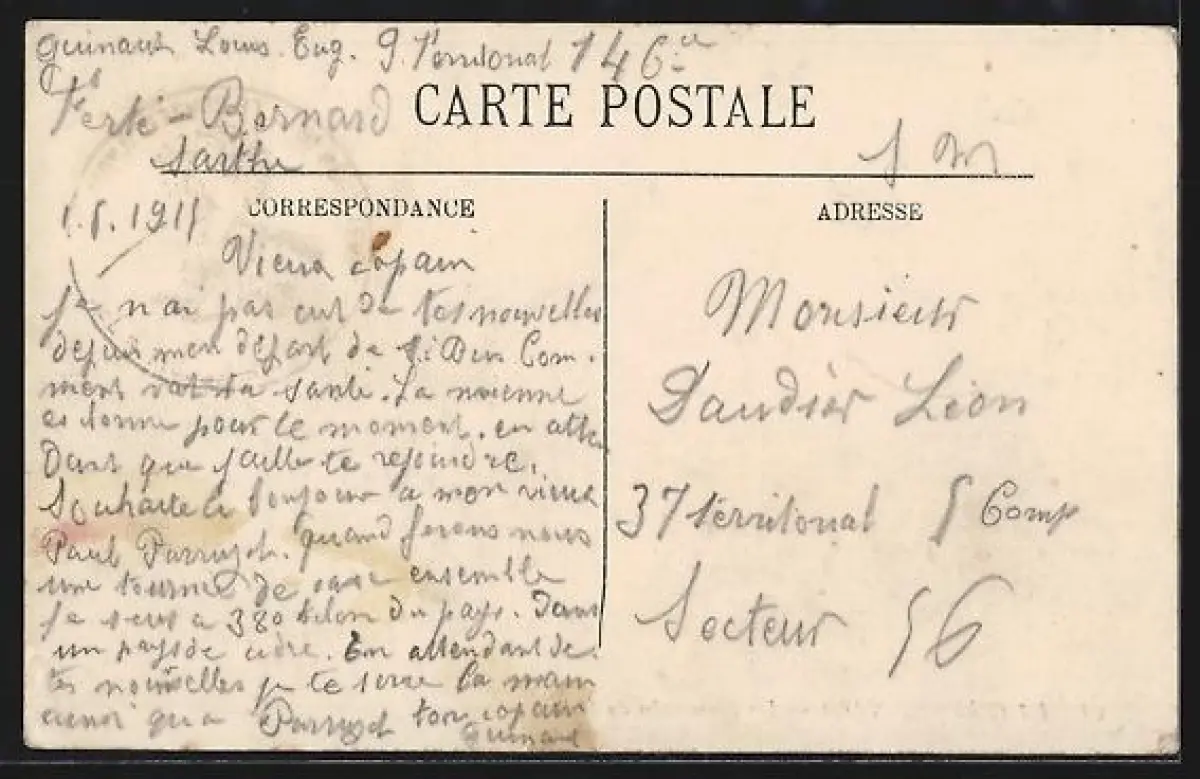 Guinault Louis Eug. 9 Territorial 146e
Ferté-Bernard
Sarthe
CARTE POSTALE
S M
1.5.1915
CORRESPONDANCE
Vieux copain
Je n ai pas eut de tes nouvelles
depuis mon départ de Com-
ment vat ta santé. La mienne
es bonne pour le moment. en atten
dant que j'aille te rejoindre.
Souhaite le bonjour a mon vieux
Paul Parruzot. quand ferons nous
une tourné de ensemble
Je suis a 380 kilom du pays. Dans
un pays de cidre. En attendant de
tes nouvelles je te serre la main
ainsi qu a Parruzot ton copain
Guinault
ADRESSE
Monsieur
Daudier Léon
37 territorial 5 Comp
Secteur 56